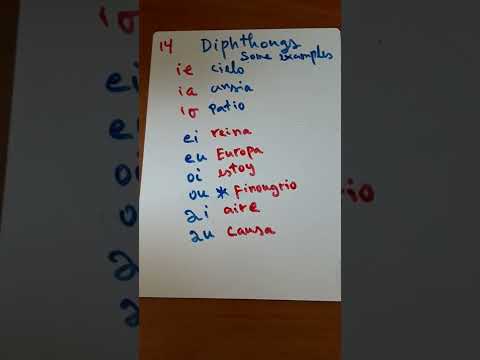 14 Diphthongs
Some examples
ie cielo
ia ansia
io patio
ei reina
eu Europa
oi estoy
ou * Finougrio
ai aire
au causa